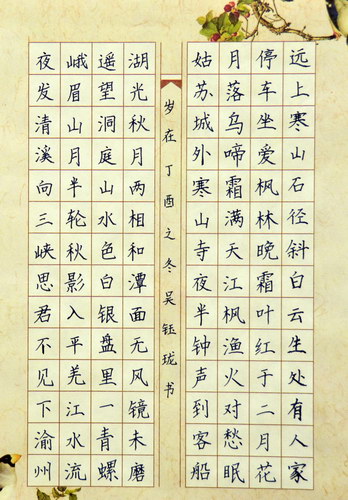 远上寒山石径斜白云生处有人家
停车坐爱枫林晚霜叶红于二月花
月落乌啼霜满天江枫渔火对愁眠
姑苏城外寒山寺夜半钟声到客船
岁在丁酉之冬吴钰珑书
湖光秋月两相和潭面无风镜未磨
遥望洞庭山水色白银盘里一青螺
峨眉山月半轮秋影入平羌江水流
夜发清溪向三峡思君不见下渝州